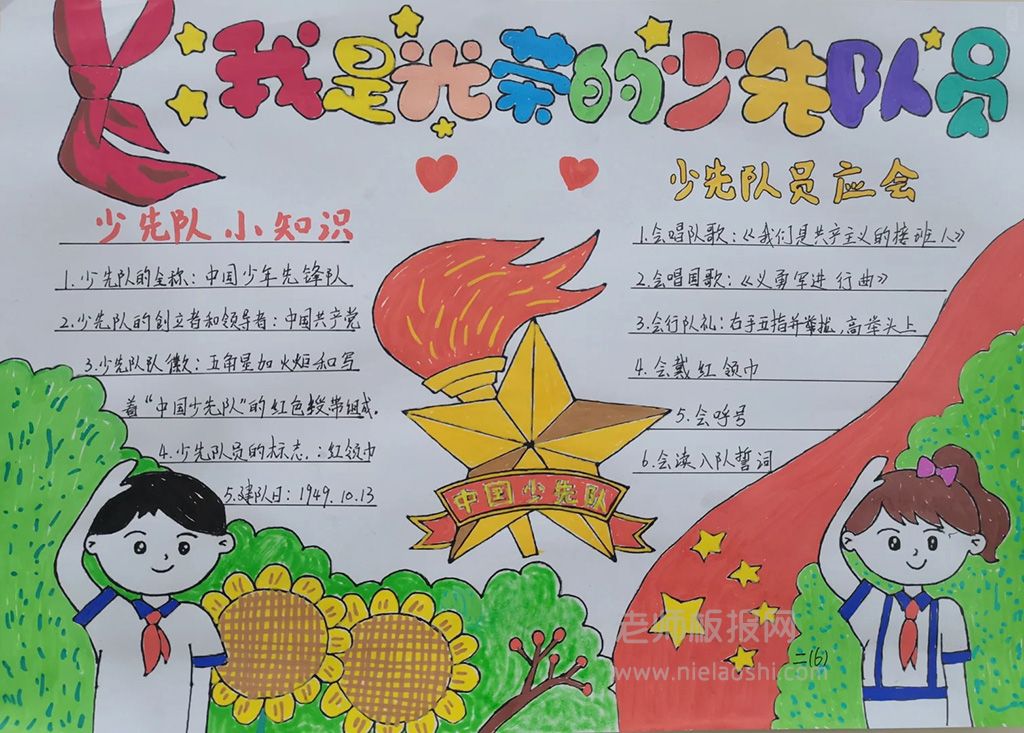 我是光荣的少先队员
少先队小知识
1.少先队的全称：中国少年先锋队
2.少先队的创立者和领导者：中国共产党
3.少先队队徽：五角星加火炬和写
着“中国少先队”的红色绶带组成.
4.少先队员的标志.：红领巾
5.建队日：1949.10.13
中国少先队
少先队员应会
1.会唱队歌：《我们是共产主义的接班人》
2.会唱国歌：《义勇军进行曲》
3.会行队礼：右手五指并拢，高举头上
4.会戴红领巾
5.会呼号
6.会读入队誓词
二(6)
老师版报网
www.nielaoshi.com